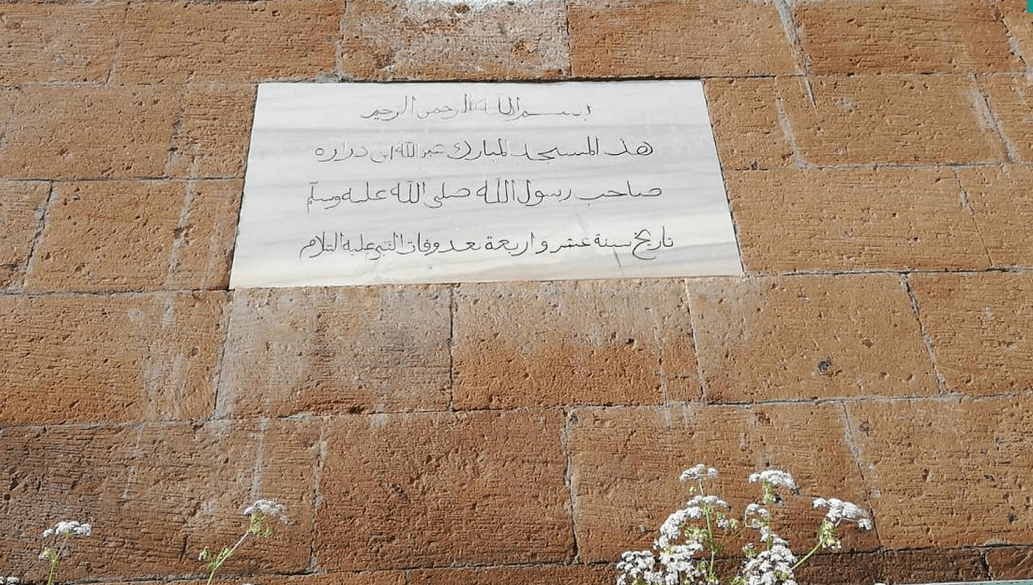 بسم الله الرحمن الرحيم
هذ المسجد المبارك عبد الله ابى دراره
صاحب رسول الله صلى الله عليه وسلم
تاريخ سنة عشر و اربعة بعد وفات النبي عليه السلام